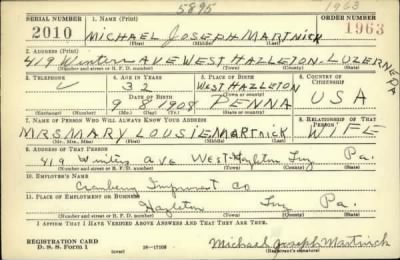 5895 1963
SERIAL NUMBER 1. NAME (Print) ORDER NUMBER
2010 MICHAEL JOSEPH MARTNICK 1963
(First) (Middle) (Last)
2. ADDRESS (Print)
419 Winters AVE WEST HAZLETON LUZERNE PA
(Number and street or R. F. D. number) (Town) (County) (State)
3. TELEPHONE 4. AGE IN YEARS 5. PLACE OF BIRTH 6. COUNTRY OF CITIZENSHIP
32 WEST HAZLETON
DATE OF BIRTH (Town or county)
9 8 1908 PENNA USA
(Mo.) (Day) (Yr.) (State or country)
7. NAME OF PERSON WHO WILL ALWAYS KNOW YOUR ADDRESS 8. RELATIONSHIP OF THAT PERSON
MRS MARY LOUSIE MARTNICK WIFE
(Mr., Mrs., Miss) (First) (Middle) (Last)
9. ADDRESS OF THAT PERSON
419 Winters ave West Hazleton Luz Pa.
(Number and street or R. F. D. number) (Town) (County) (State)
10. EMPLOYER'S NAME
Cranberry Improvement Co
11. PLACE OF EMPLOYMENT OR BUSINESS
Hazleton Luz Pa.
(Number and street or R. F. D. number) (Town) (County) (State)
I AFFIRM THAT I HAVE VERIFIED ABOVE ANSWERS AND THAT THEY ARE TRUE.
REGISTRATION CARD
D. S. S. Form 1 (over) 16—17105 Michael Joseph Martnick
(Registrant's signature)